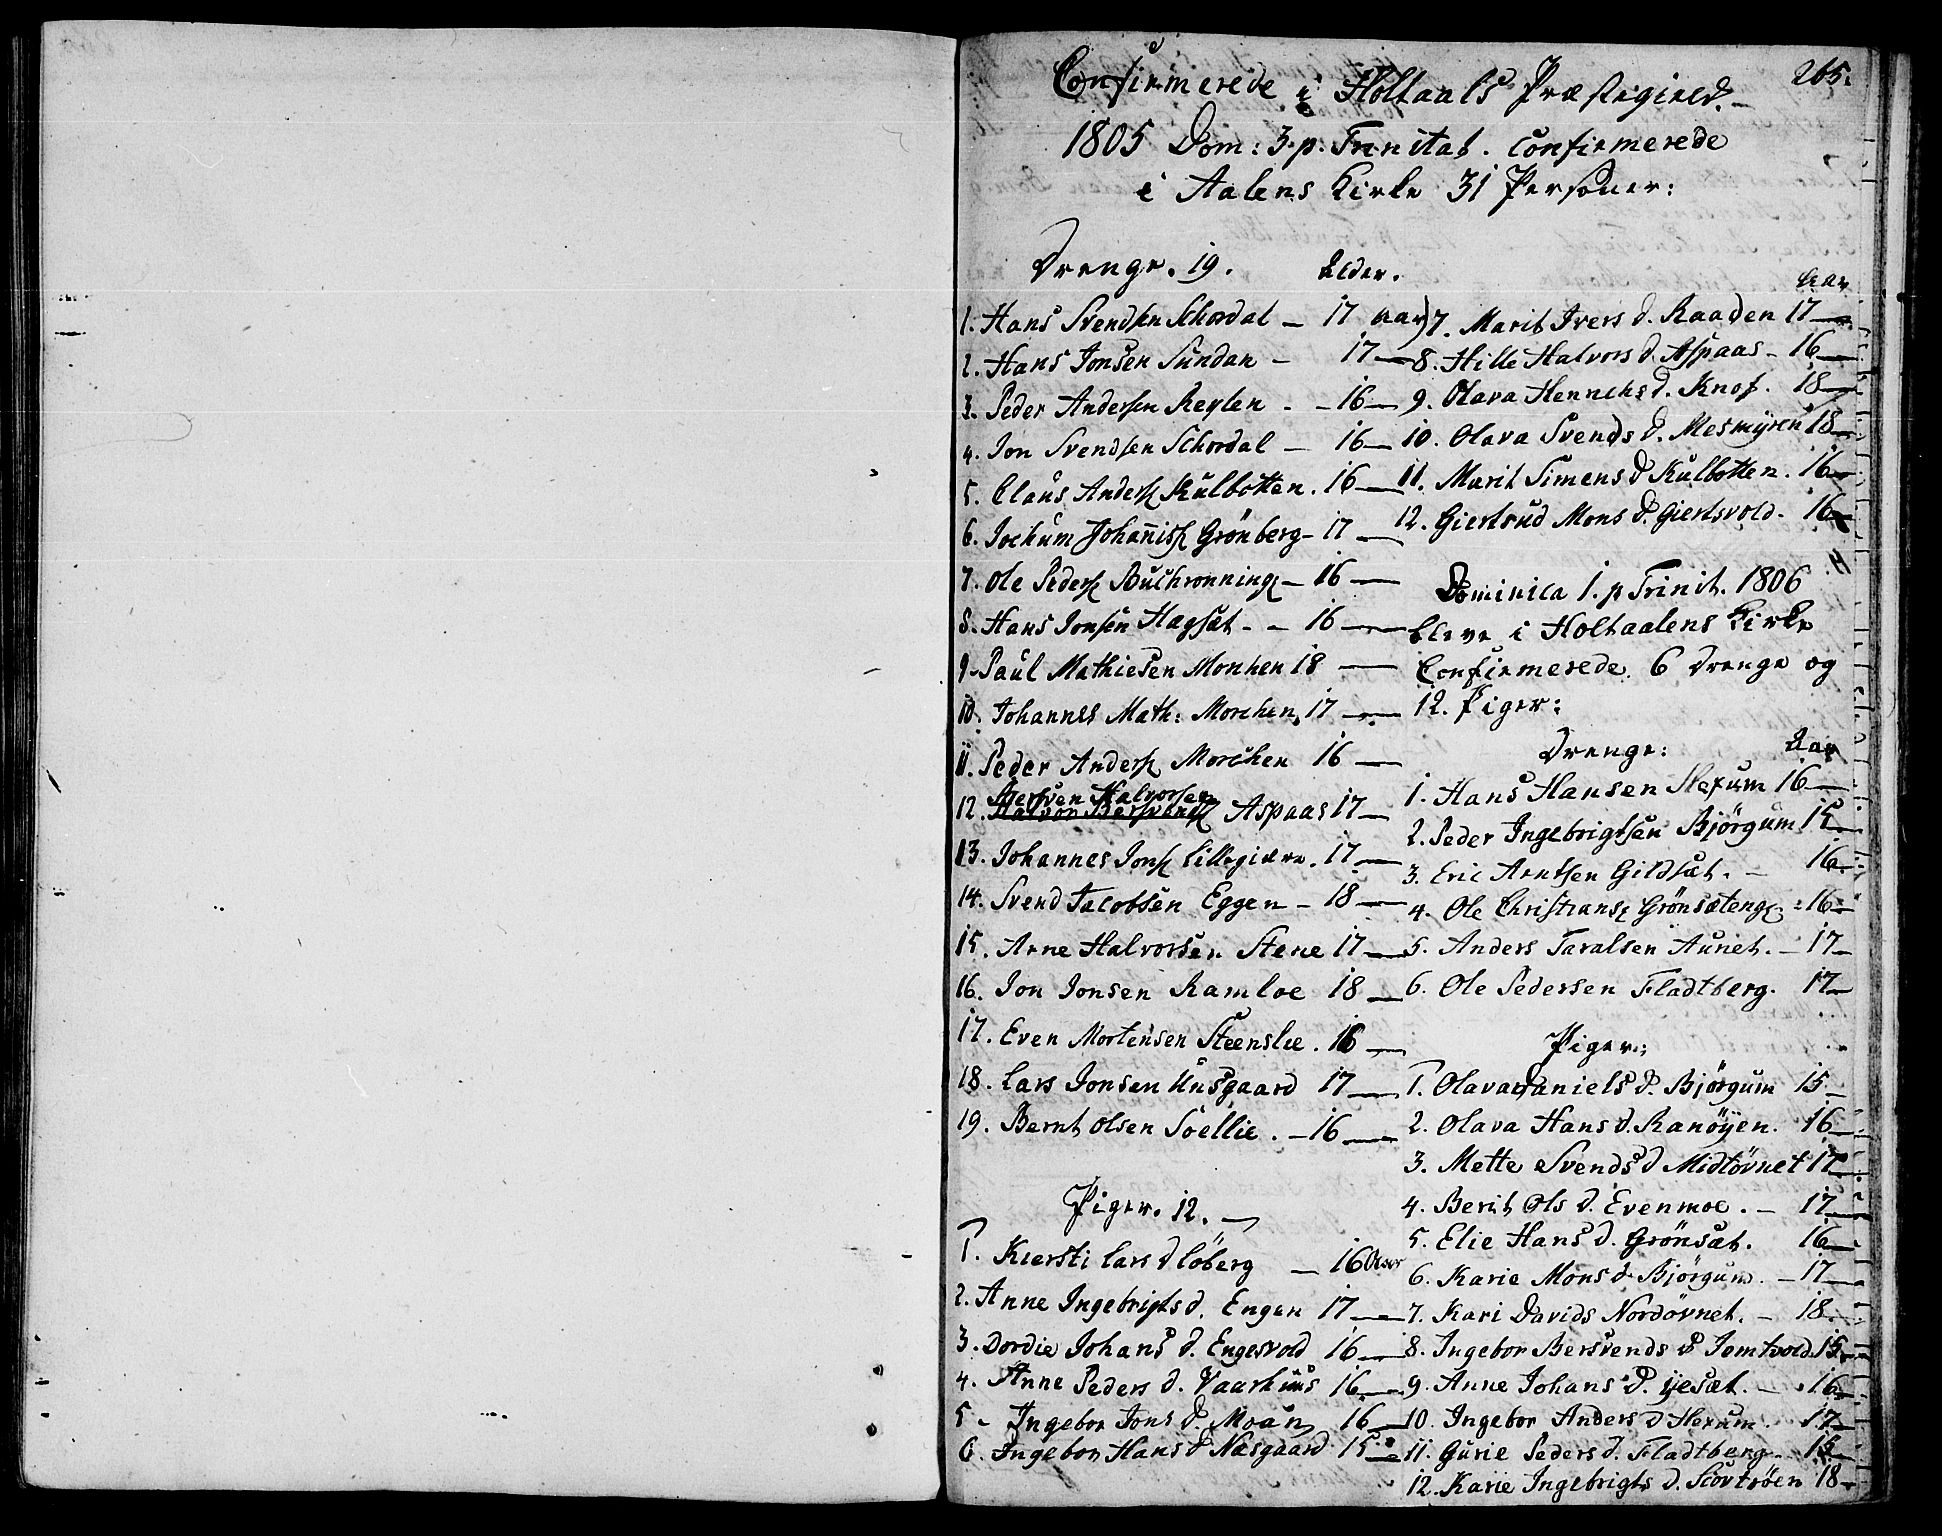 265.
Confirmerede i Holtaals Præstegield.
1805 Dom: 3. p. Trinitat. confirmerede
i Aalens Kirke 31 Personer:
Drenge. 19. Alder.
1. Hans Svendsen Schordal – 17 aar
2. Hans Jonsen Sundan – 17 —
3. Peder Andersen Reylen – 16 —
4. Jon Svendsen Schordal – 16 —
5. Claus Anders Kulbotten. 16 —
6. Jochum Johannis Grönberg – 17 —
7. Ole Peders Buchronning – 16 —
8. Hans Jonsen Hagsæt – 16 —
9. Paul Mathiesen Monhen 18 —
10. Johannes Math: Morchen, 17 —
11. Peder Anders Morchen 16 —
Bersven Halvorsen
12. Halvor Bersvends Aspaas 17 —
13. Johannes Jons Lillegiære. 17 —
14. Svend Jacobsen Eggen – 18 —
15. Arne Halvorsen Stene 17 —
16. Jon Jonsen Ramloe 18 —
17. Even Mortensen Steenslie. 16 —
18. Lars Jonsen Unsgaard 17 —
19. Bernt Olsen Soellie. – 16 —
Piger. 12. —
1. Kiersti Lars d Löberg – 16 Aar
2. Anne Ingebrigts d. Engen 17 —
3. Dordie Johans d. Engesvold 16 —
4. Anne Peders d. Vaarhuus 16 —
5. Ingebor Jons d Moan 16 —
6. Ingebor Hans d Næsgaard 15 —
Aar
7. Marit Ivers d. Raaden 17 —
8. Hille Halvors d. Aspaas – 16 —
9. Olava Henrichs d. Knof. 18 —
10. Olava Svends d. Mesmyren 18 —
11. Marit Simens d Kulbotten. 16 —
12. Giertrud Mons d. Giertsvold. 16 —
Dominica 1. p Trinit. 1806
bleve i Holtaalens Kirke
Confirmerede. 6 Drenge og
12. Piger:
Drenge: Aar
1. Hans Hansen Hexum 16 —
2. Peder Ingebrigtsen Bjørgum 15 —
3. Eric Arntsen Gildsæt. – 16 —
4. Ole Christians Grönsæteng 16 —
5. Anders Taralsen Aunet. – 17 –
6. Ole Pedersen Fladtberg. 17 —
Piger:
1. Olava Daniels d. Bjørgum 15 –
2. Olava Hans d. Ranöyen. 16 —
3. Mette Svends d Midtövnet 17 —
4. Berit Ols d. Evenmoe. – 17 —
5. Elie Hans d. Grönsæt. 16 —
6. Karie Mons d. Bjørgum. – 17 —
7. Kari Davids Nordövnet. – 18 —
8. Ingebor Bersvends d Jemtvold. 15 —
9. Anne Johans d. yesæt. – 16 —
10. Ingebor Anders d Hexum 17 —
11. Gurie Peders d. Fladtberg – 15 —
12. Karie Ingebrigts d. Scovtröen 18 –